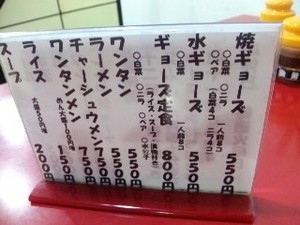 焼ギョーズ 550円
○白菜 ○ニラ 一人前8コ
○ペア (白菜4コ ニラ4コ)
水ギョーズ 550円
○白菜 一人前8コ
ギョーズ定食 800円
(ライス・スープ・漬物付き)
○白菜 ○ニラ ○ペア ○水ギョーズ
ワンタン 550円
ラーメン 550円
チャーシュウメン 750円
ワンタンメン 750円
めん大盛100円増
ライス 150円
大盛50円増
スープ 200円